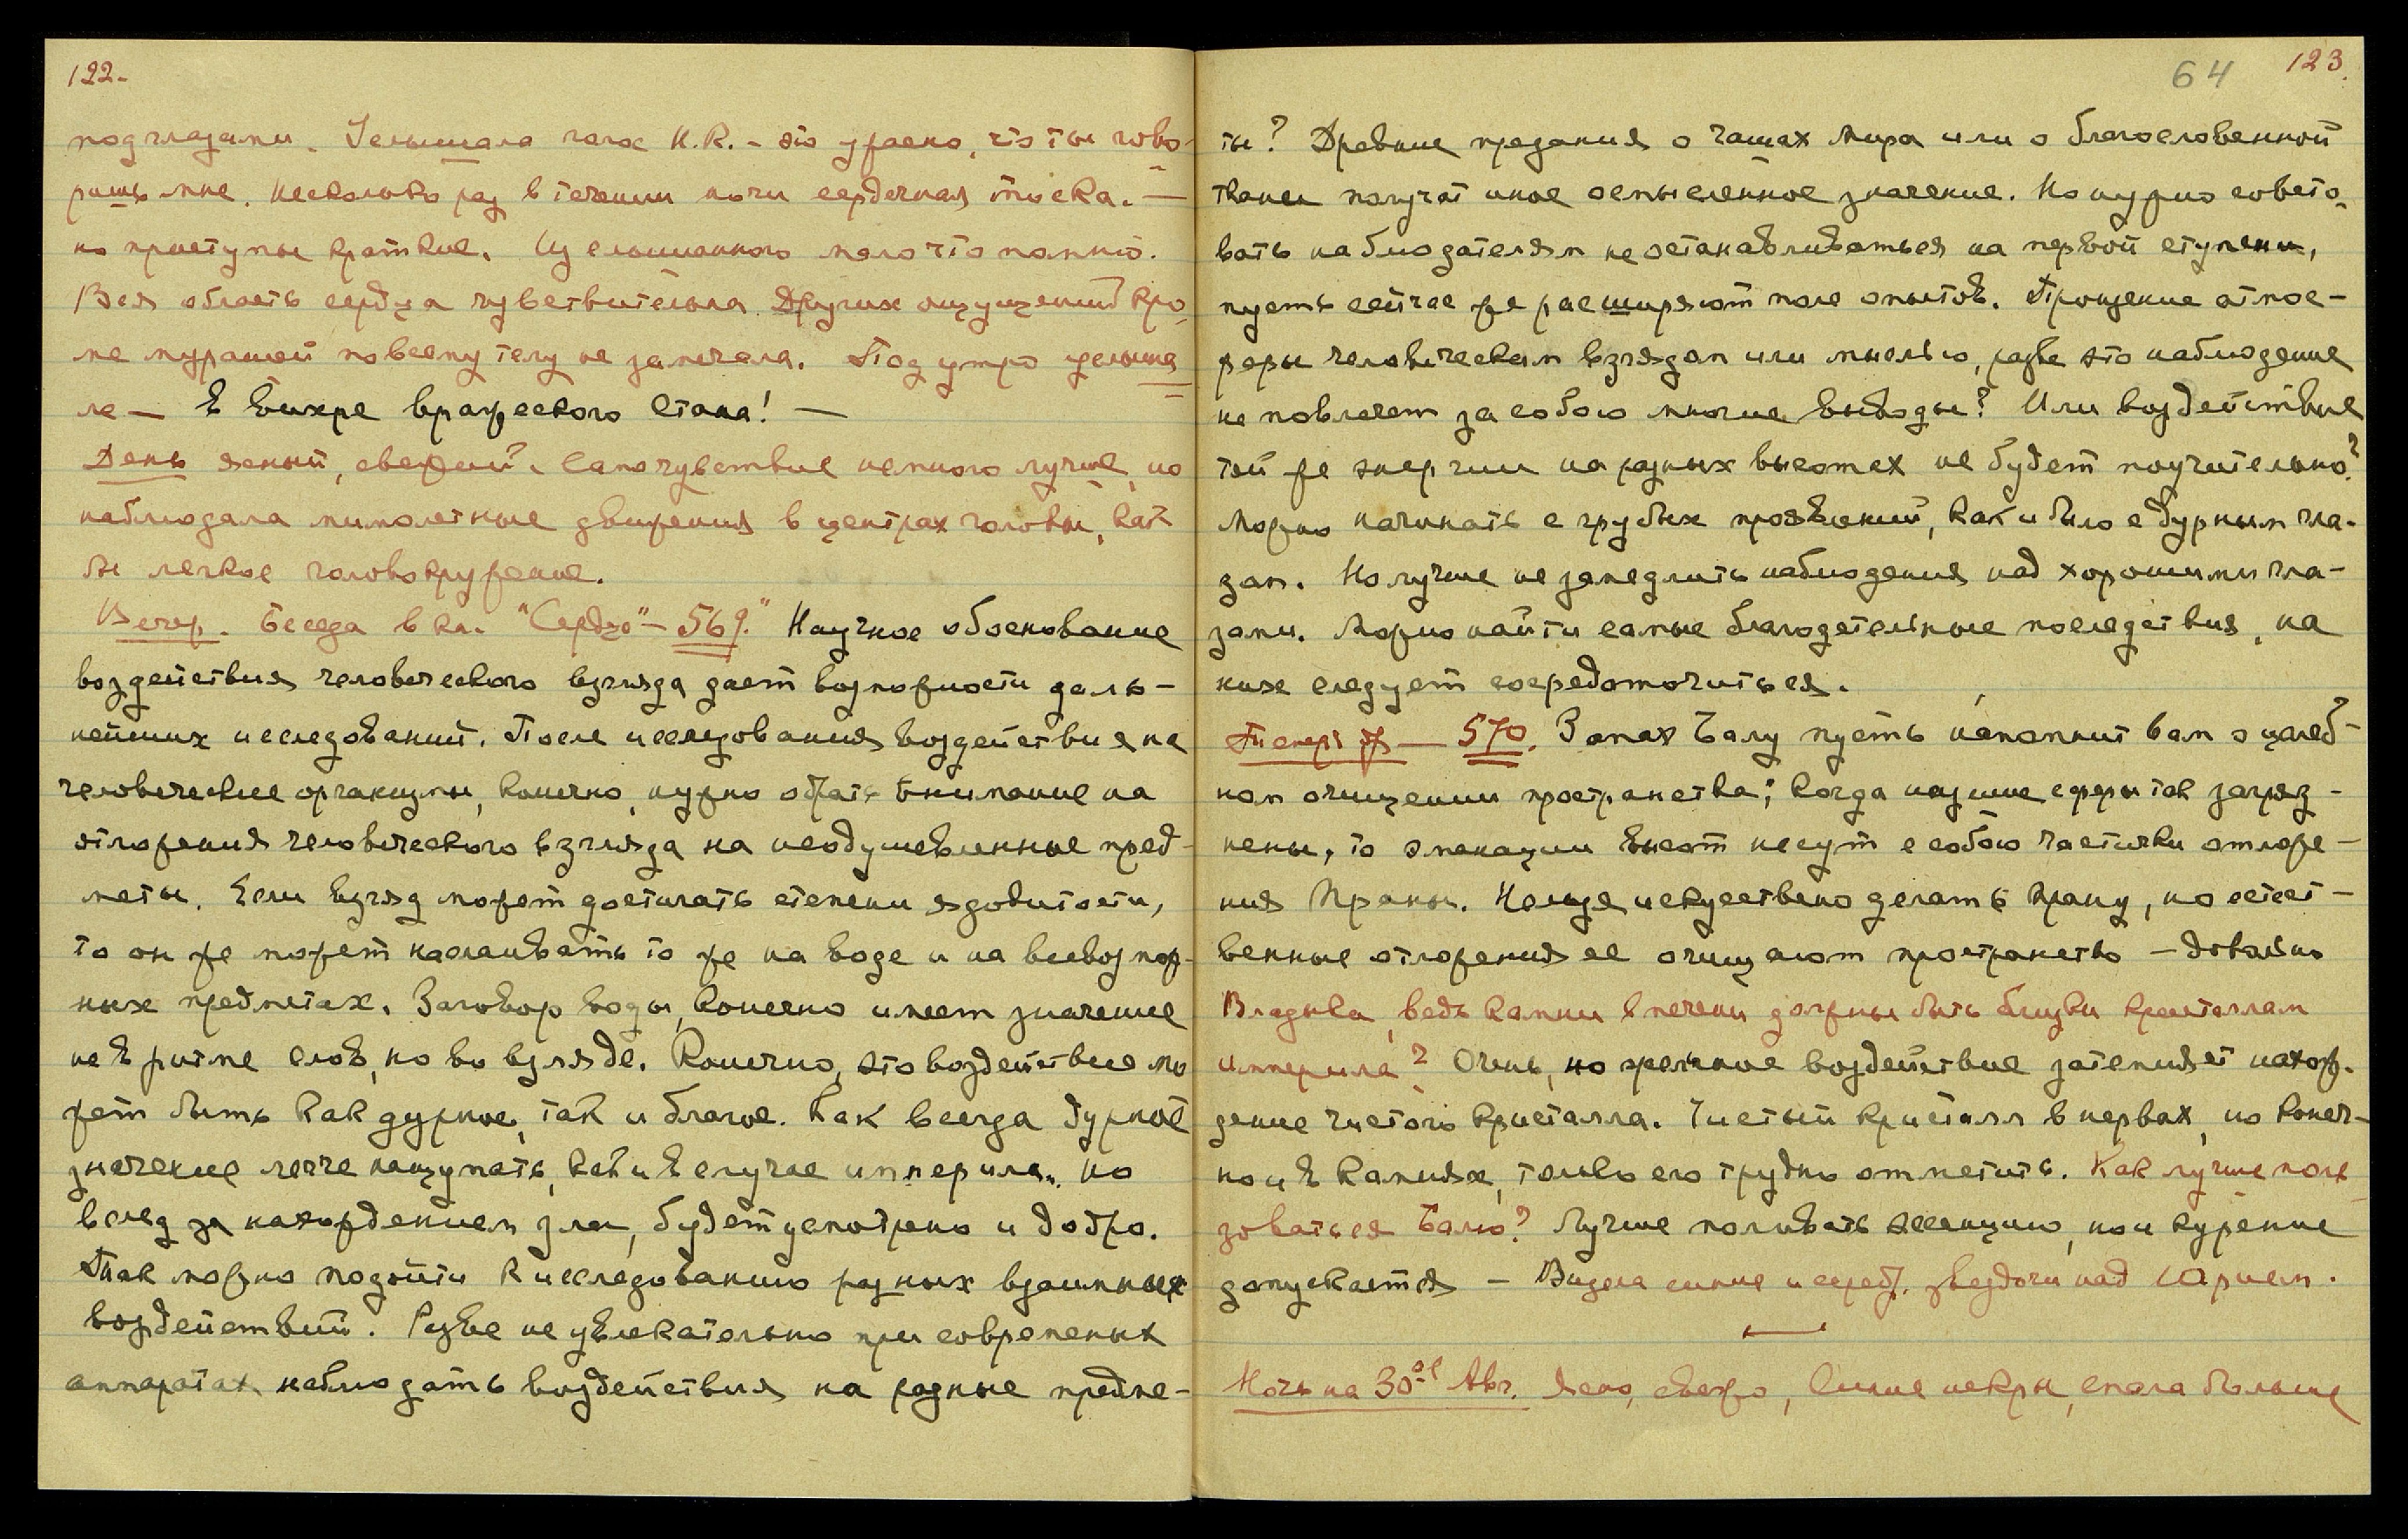 122.
под глазами. Услышала голос Н.К. – это ужасно, что ты гово-
ришь мне. Несколько раз в течении ночи сердечная тоска. —
но приступы краткие. Из слышанного мало что помню.
Вся область сердца чувствительна. Других ощущений кро-
ме мурашей по всему телу не замечала. Под утро услыша-
ла — В вихре вражеского стана! —
День ясный, свежий. Самочувствие немного лучше, но
наблюдала мимолетные движения в центрах головы, как
бы легкое головокружение.
Вечер. Беседа в кн. "Сердце" – 569." Научное обоснование
воздействия человеческого взгляда дает возможности даль-
нейших исследований. После исследования воздействия на
человеческие организмы, конечно, нужно обрать внимание на
отложения человеческого взгляда на неодушевленные пред-
меты. Если взгляд может достигать степени ядовитости,
то он же может наслаивать то же на воде и на всевозмож-
ных предметах. Заговор воды, конечно имеет значение
не в ритме слов, но во взгляде. Конечно, это воздействие мо
жет быть как дурное, так и благое. Как всегда дурное
значение легче нащупать, как и в случае империла. но
вслед за нахождением зла, будет усмотрено и добро.
Так можно подойти к исследованию разных взаимных
воздействий. Разве не увлекательно при современных
аппаратах наблюдать воздействия на разные предме-
64 123.
ты? Древние предания о чашах мира или о благословенной
ткани получат иное осмысленное значение. Но нужно совето-
вать наблюдателям не останавливаться на первой ступени,
пусть сейчас же расширяют поле опытов. Прощение атмос-
феры человеческим взглядом или мыслью, разве это наблюдение
не повлечет за собою многие выводы? Или воздействие
той же энергии на разных высотах не будет поучительно?
Можно начинать с грубых проявлений, как и было с дурным гла-
зом. Но лучше не замедлить наблюдения над хорошими гла-
зами. Можно найти самые благодетельные последствия, на
них следует сосредоточиться.
570. Запах Балу пусть напомнит вам о целеб-
ном очищении пространства; когда низшие сферы так загряз-
нены, то эманации высот несут с собою частички отложе-
ния Праны. Нельзя искусственно делать прану, но естест-
венные отложения ее очищают пространство – довольно
Владыка, ведь камни в печени должны быть близки кристаллам
империла? Очень, но желчное воздействие затемняет нахож-
дение чистого кристалла. Чистый кристалл в нервах, но конеч-
но и в камнях, только его трудно отметить. Как лучше поль
зоваться Балю? Лучше поливать эссенцию, но и курение
допускается – Видела синие и сереб. звездочи над Юрием.
Ночь на 30ое Авг. Ясно, свежо, Синие искры, спала больше